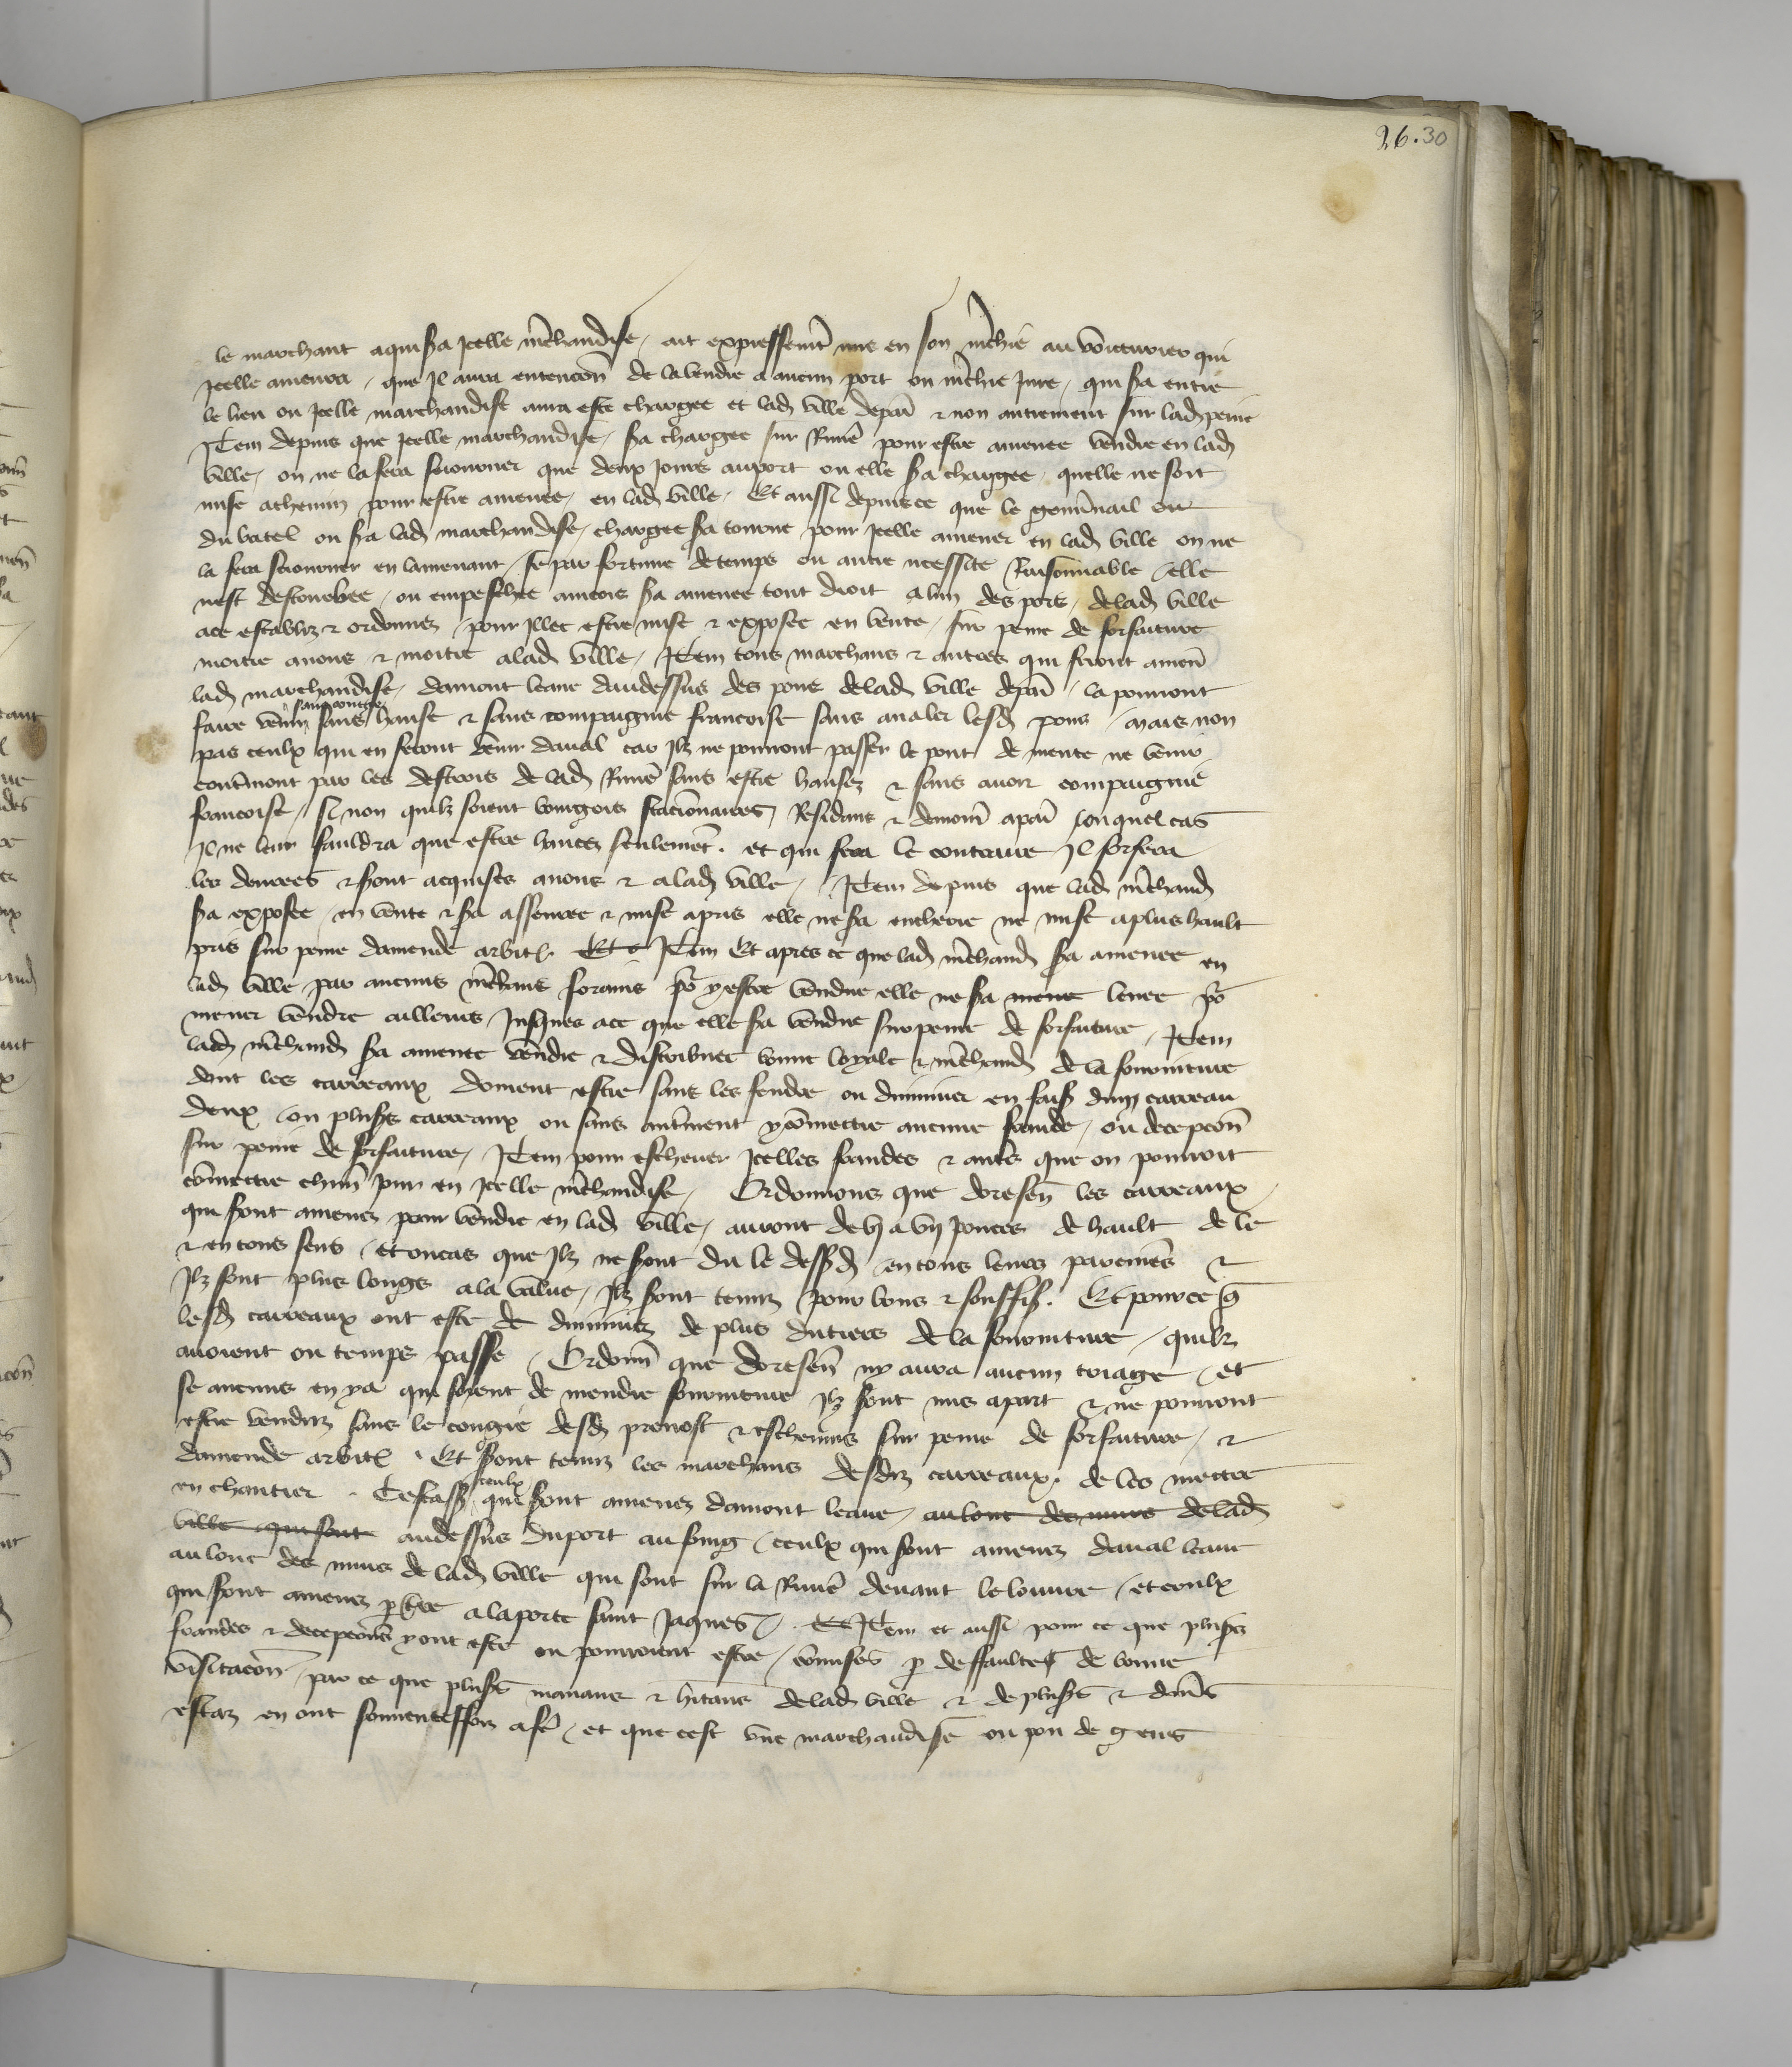 26.30
le marchant aqui sa icelle mchandise, ait expressemt mis en son mchie au voicturier qui
icelle amenra, que il aura entencon de la vendre a aucun port ou mchie jure, qui sa entre
le lieu ou icelle marchandise aura este chargee et lad ville de pai & non autrement sur lad peine
Item depuis que icelle marchandise, sa chargee sur riuie pour estre amenee vendre en lad
ville, on ne la fera seiourner que deux jours au port ou elle sa chargee, quelle ne soit
mise achemin pour estre amenee, en lad ville, Et aussi depuis ce que le gouunail ou
du batel ou sa lad marchandise, chargee sa tourne pour icelle amener en lad ville on ne
la fera seiourner en lamenant, se par fortune de temps ou autre necessite Raisonnable elle
nest destourbee, ou empeschee aincois sa amenee tout droit a lun des pors, de lad ville
ace establiz & ordonnez, pour illec estre mise & exposee en vente, sur peine de forfaiture
moitie a nous & moitie a lad ville, Item tous marchans & autres qui feront amen
lad marchandise, damont leaue daudessus des pons de lad ville de pai, la pourront
faire venir sans hanse & sans compaignie francoise sans aualer lesd pons, mais non
sans contre
pas ceulx qui en feront venir daual car ilz ne pourront passer le pont de mente ne venir
contmont par les destrois de lad riuie sans estre hansez & sans auoir compaignie
francoise, si non quilz soient bourgois stacionnaires, Residans & demour a pai ouquel cas
il ne leur fauldra que estre hansez seulemet. et qui fera le contraire il forfera
les denrees & sont acquises a nous & a lad ville, Item depuis que lad mchand
sa exposee, en vente & sa afferee & mise a pris elle ne sa encherie ne mise a plus hault
pris sur peine damende arbit. Et Item Et apres ce que lad mchand sa amenee en
lad ville par aucuns mchans forains po y estre vendue elle ne sa menee leuee po
mener vendre ailleurs, jusques ace que elle sa vendue sur peine de forfaiture, Item
lad mchand sa amenee vendre & distribuer bonne loyale & mchand de la fourniture
dont les carreaux doiuent estre sans les fendre ou diminuer en fais dun carreau
deux ou plusrs carreaux ou sans autment y comectre aucune fraude, ou decepcon
sur peine de forfaiture, Item pour escheuer icelles fraudes & auts que on pourroit
comectre chun jour en icelle mchandise, Ordonnons que doresen les carreaux
qui sont amenez pour vendre en lad ville, auront de vj a vij pouces de hault de le
& en tous sens, et ou cas que ilz ne sont du le dessusd en tous leurs paremens &
ilz sont plus longs a la value, ilz sont tenuz pour bons & souffis. Et pour ce q
lesd carreaux ont este de diminuez de plus du tiers de la fourniture, quilz
auoient ou temps passe, Ordonn que doresen ny aura aucun triage, et
se aucuns en ya qui soient de mendre fourniture ilz sont mis apart & ne pourront
estre venduz sans le congie desd preuost & escheuins sur peine de forfaiture, &
damende arbit. Et sont tenuz les marchans desdiz carreaux. de les mectre
en chantier. Cestass ceulx que sont amenez damont leaue, au lonc des murs de lad
ville qui sont audessus du port au foing, ceulx qui sont amenez daual leaue
au lonc des murs de lad ville qui sont sur la riuie deuant le louure, et ceulx
qui sont amenez p tre a la porte saint Jaques. Et Item et aussi pour ce que plusrs
fraudes & decepcons y ont este ou pourroient estre, comises p deffaulte de bonne
visitacon, par ce que plusrs manans & hitans de lad ville & de plusrs & diuss
estaz en ont souuenteffoiz afe, et que cest vne marchandise ou pou de gens